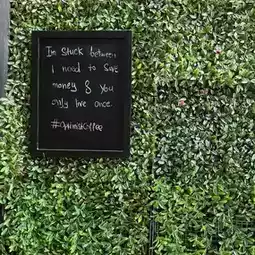 Im stuck between
I need to save
money & you
only live once.
#optimistcoffee